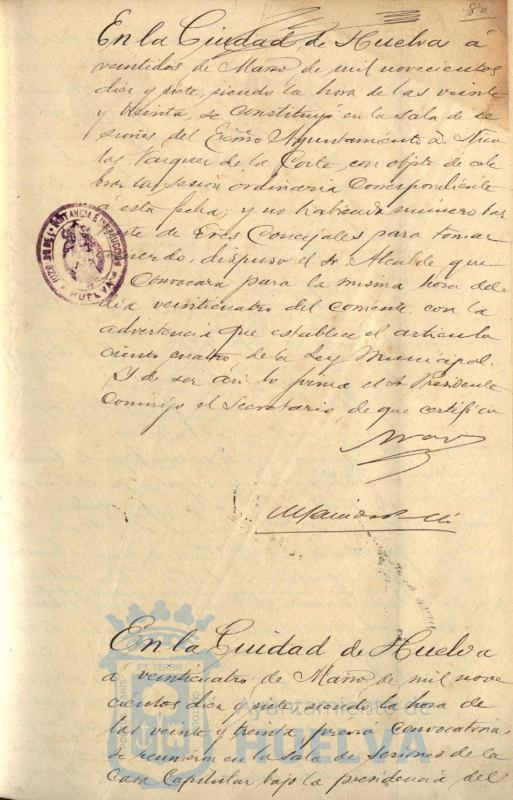 80
En la Ciudad de Huelva á
veintidos de Marzo de mil novecientos
diez y siete, siendo la hora de las veinte
y treinta, se constituyó en la Sala de Se
siones del Excmo Ayuntamiento D. Nico
las Vazquez de la Corte, con objeto de cele
brar la sesion ordinaria correspondiente
á esta fecha, y no habiendo número bas
te de Sres Concejales para tomar
acuerdo, dispuso el Sr. Alcalde que
Convocará para la misma hora del
dia veinticuatro del corriente con la
advertencia que establece el articulo
ciento cuatro de la Ley Municipal.
Y de ser asi lo firma el Sr Presidente
Conmigo el Secretario, de que certifico
HUELVA
En la Ciudad de Huelva
á veinticuatro de Marzo de mil nove
cientos diez y siete, siendo la hora de
las veinte y treinta previa convocatoria,
se reunieron en la sala de Sesiones de la
Casa Capitular bajo la presidencia del
Ayuntamiento de
HUELVA